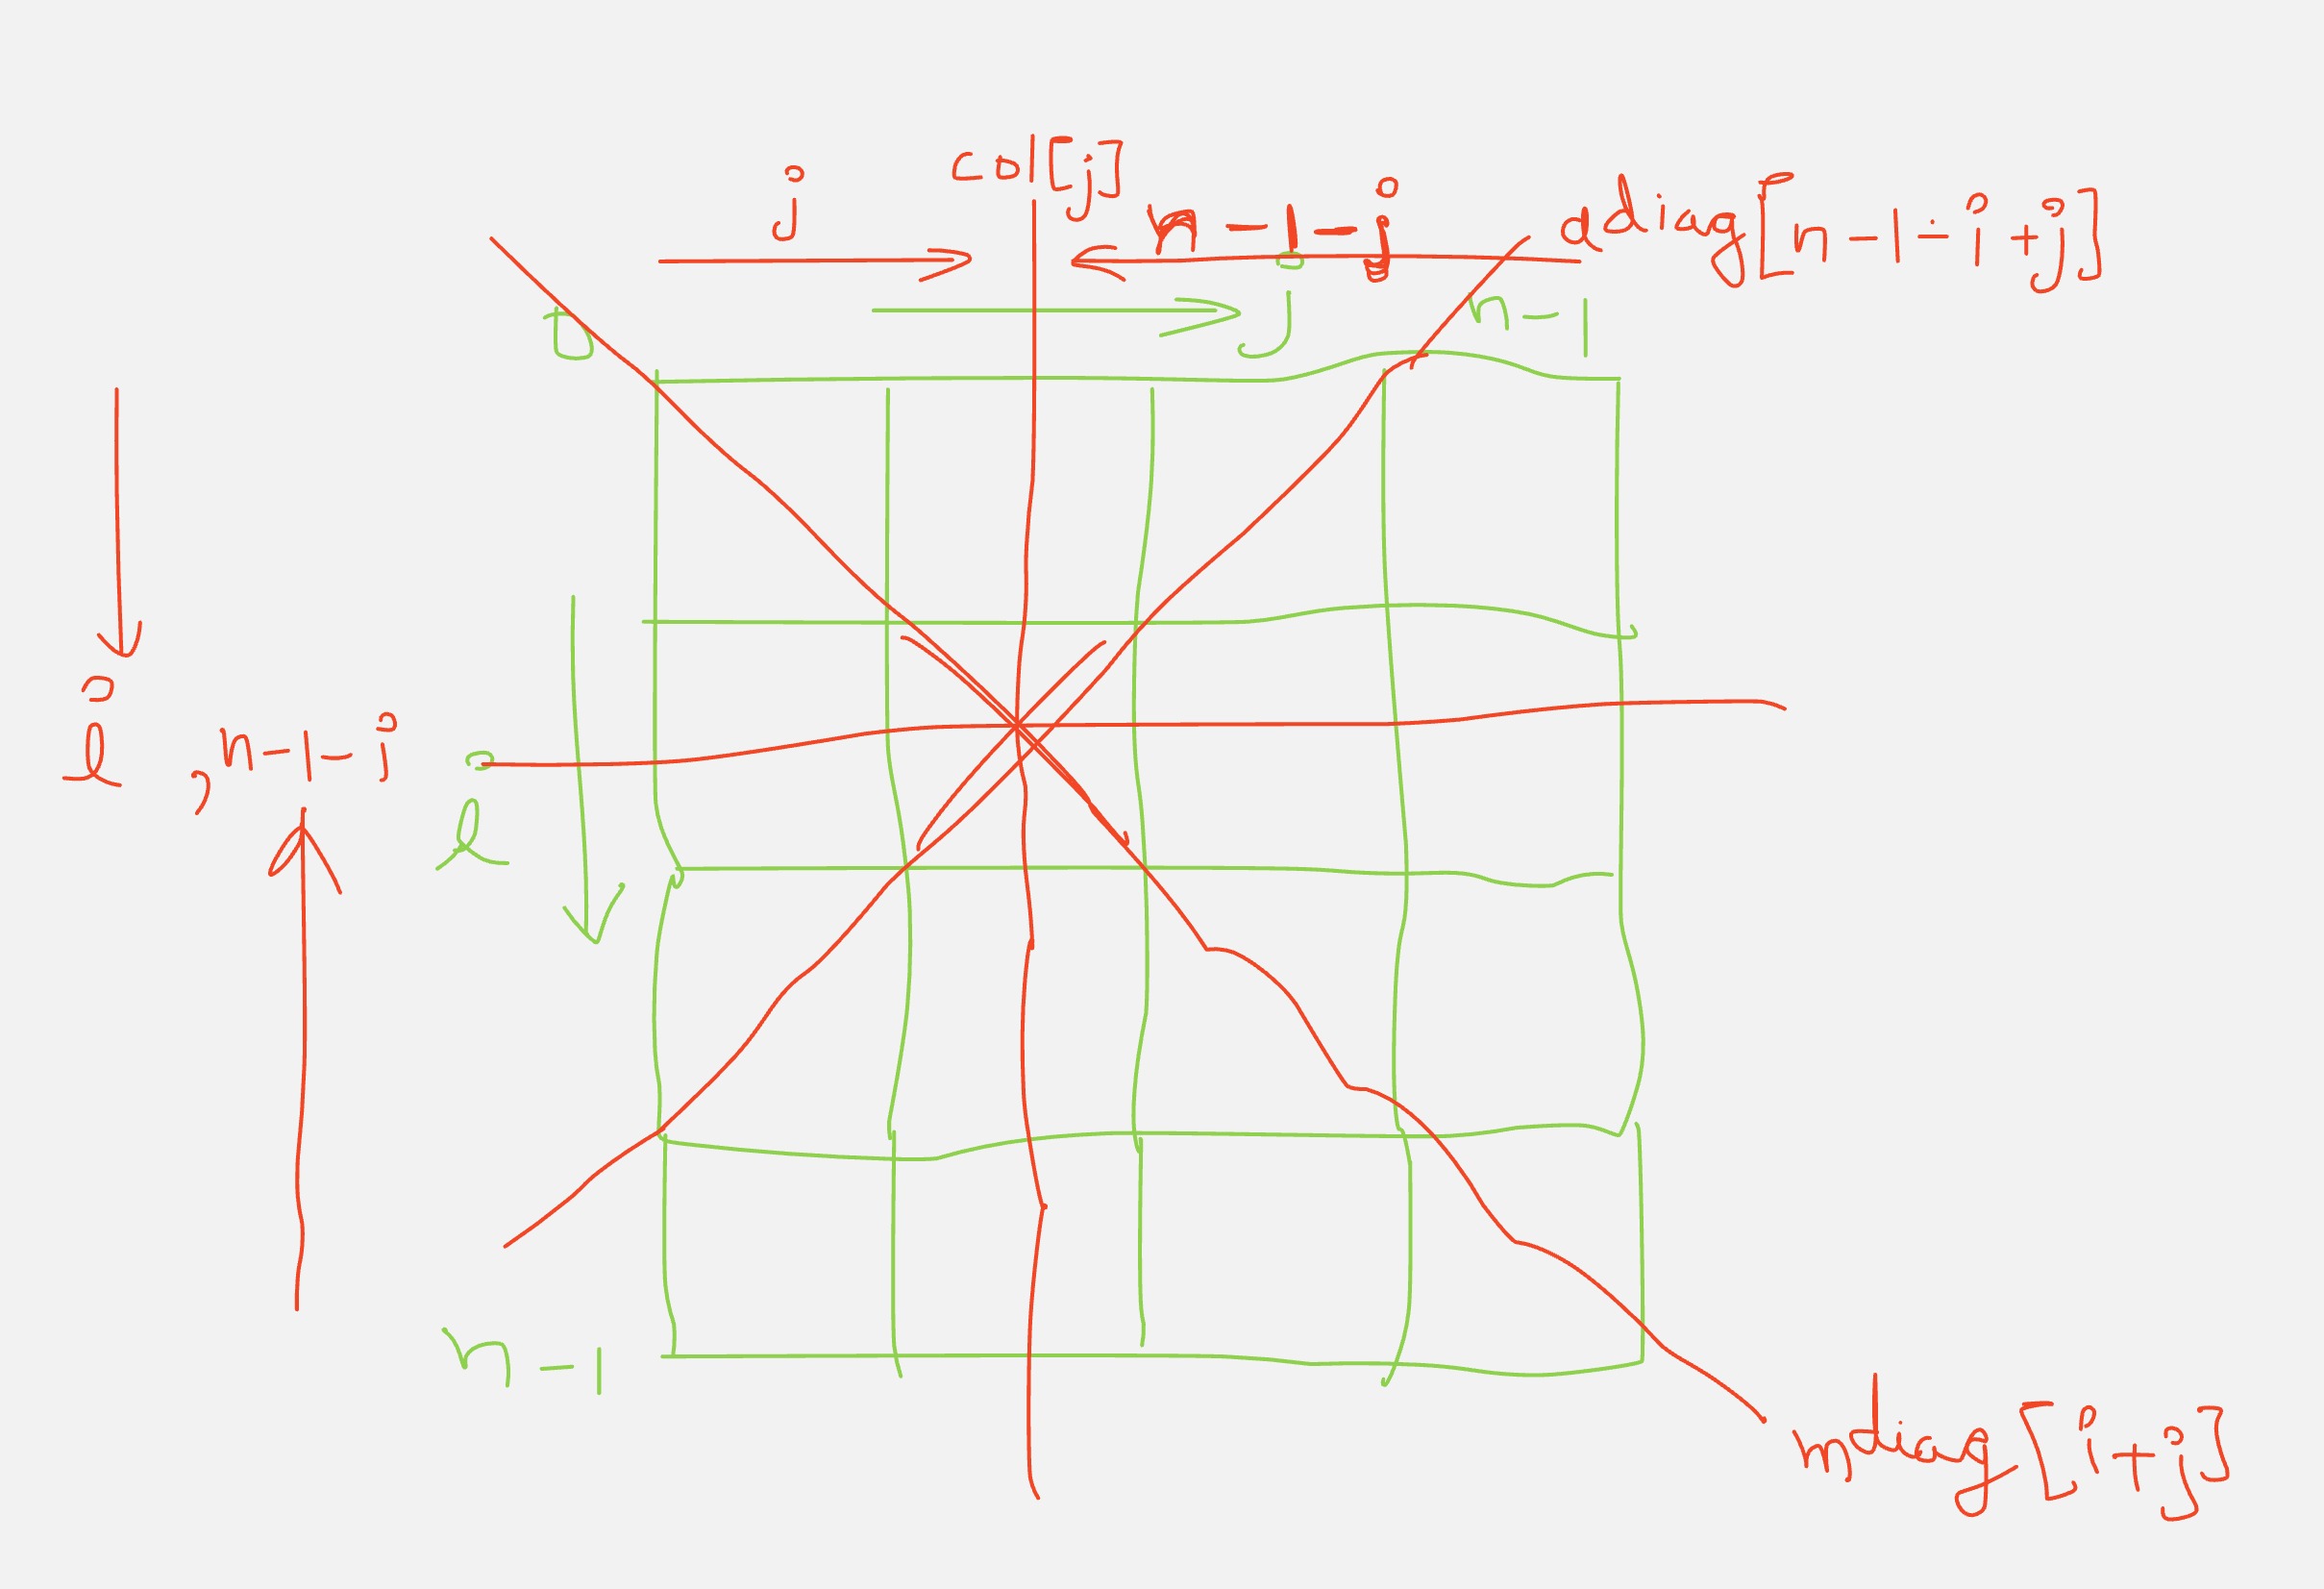 j
col[j]
n-1-j
adiag[n-1-i+j]
0
j
n-1
i
, n-1-i
i
n-1
mdiag[i+j]